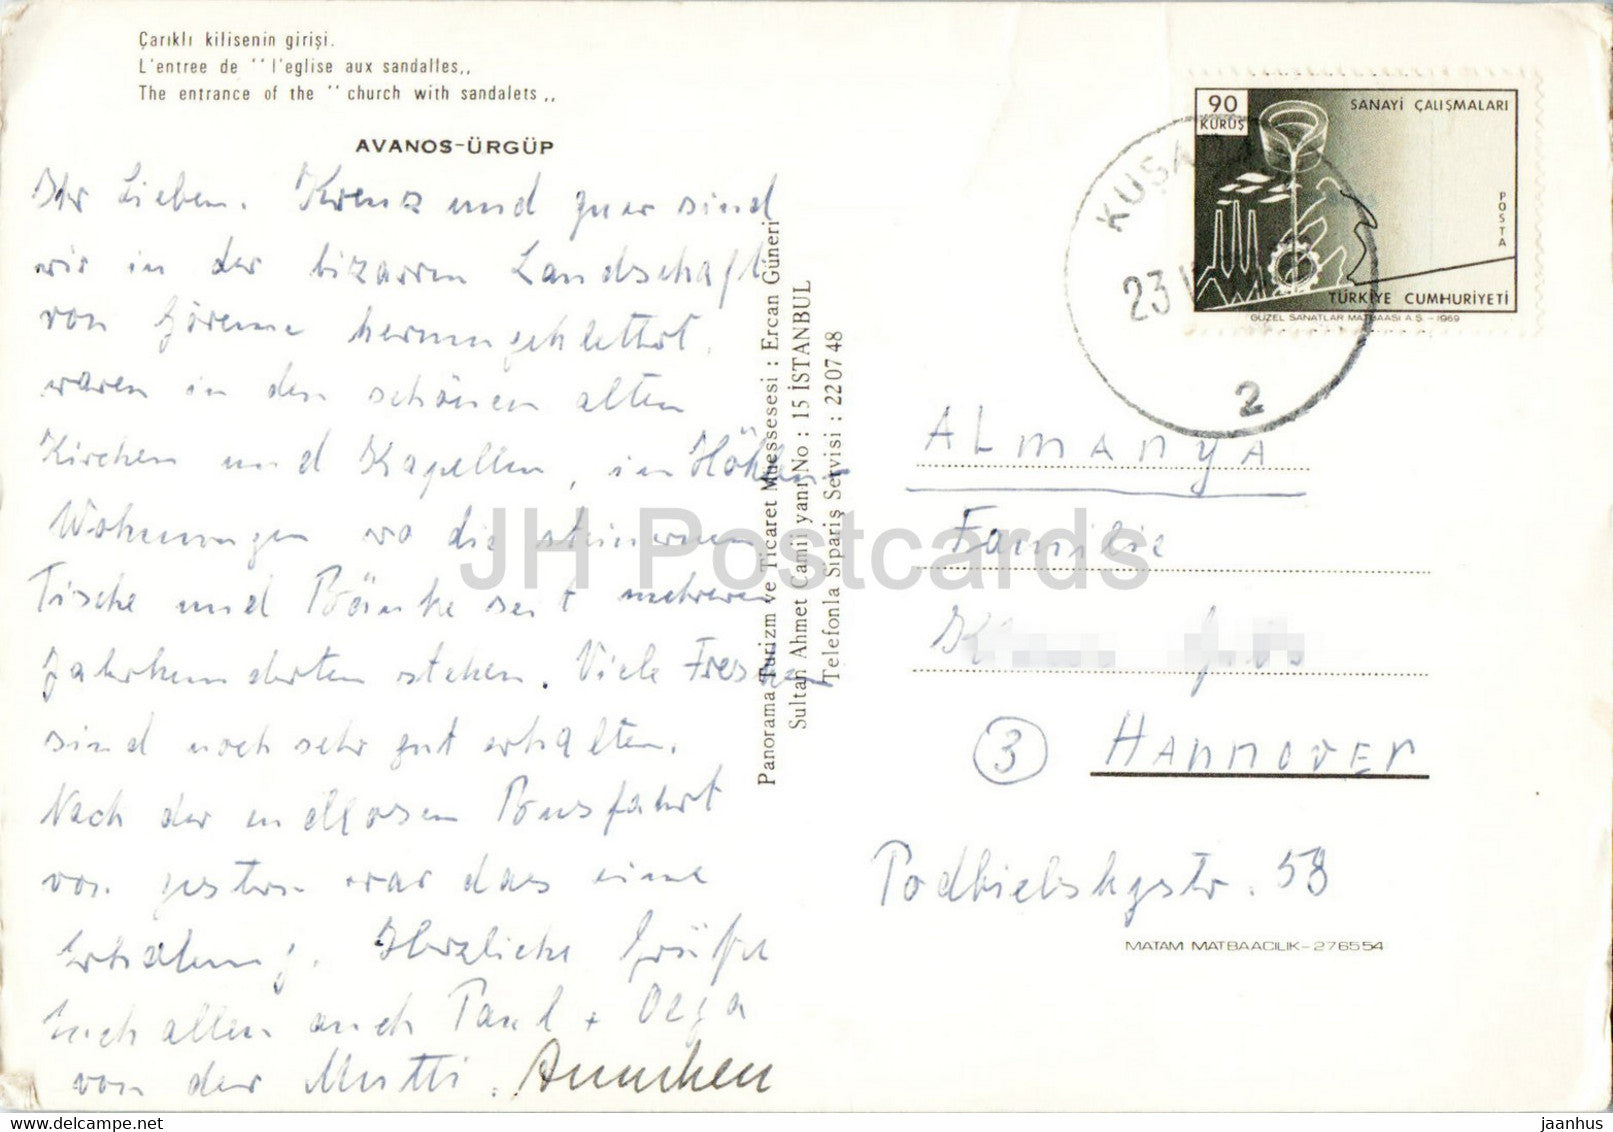 Çarıklı kilisenin girişi.
L'entree de ''l'eglise aux sandalles,,
The entrance of the ''church with sandalets,,
AVANOS-ÜRGÜP
Ihr Lieben. Kreuz und quer sind
wir in der bizarren Landschaft
von Göreme herumgeklettert,
waren in den schönen alten
Kirchen und Kapellen, in Höhlen-
Wohnungen wo die steinernen
Tische und Bänke seit mehreren
Jahrhunderten stehen. Viele Fresken
sind noch sehr gut erhalten.
Nach der endlosen Busfahrt
von gestern war das eine
Erholung. Herzliche Grüße
Euch allen auch Paul + Olga
von der Mutti. Annchen
Panorama Turizm ve Ticaret Müessesesi : Ercan Güneri
Sultan Ahmet Camii yanı No : 15 İSTANBUL
Telefonla Sipariş Servisi : 22 07 48
90
KURUŞ
SANAYİ ÇALIŞMALARI
POSTA
TÜRKİYE CUMHURİYETİ
GÜZEL SANATLAR MATBAASI A.Ş. - 1969
23
2
ALMANYA
Familie
3 HANNOVER
Podbielskystr. 58
MATAM MATBAACILIK-276554
JH Postcards
Delcampe.net
jaanhus